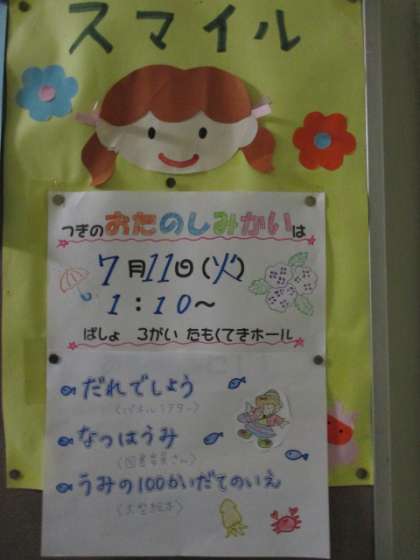 スマイル
つぎのおたのしみかいは
7月11日(火)
1:10〜
ばしょ 3がい たもくてきホール
だれでしょう
(パネルシアター)
なつはうみ
(図書委員さん)
うみの100かいだてのいえ
(大型絵本)